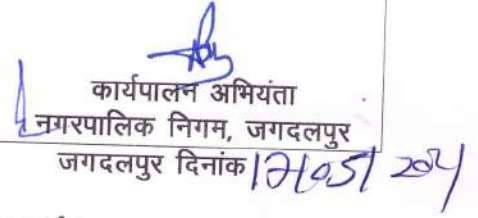 कार्यपालन अभियंता
नगरपालिक निगम, जगदलपुर
जगदलपुर दिनांक